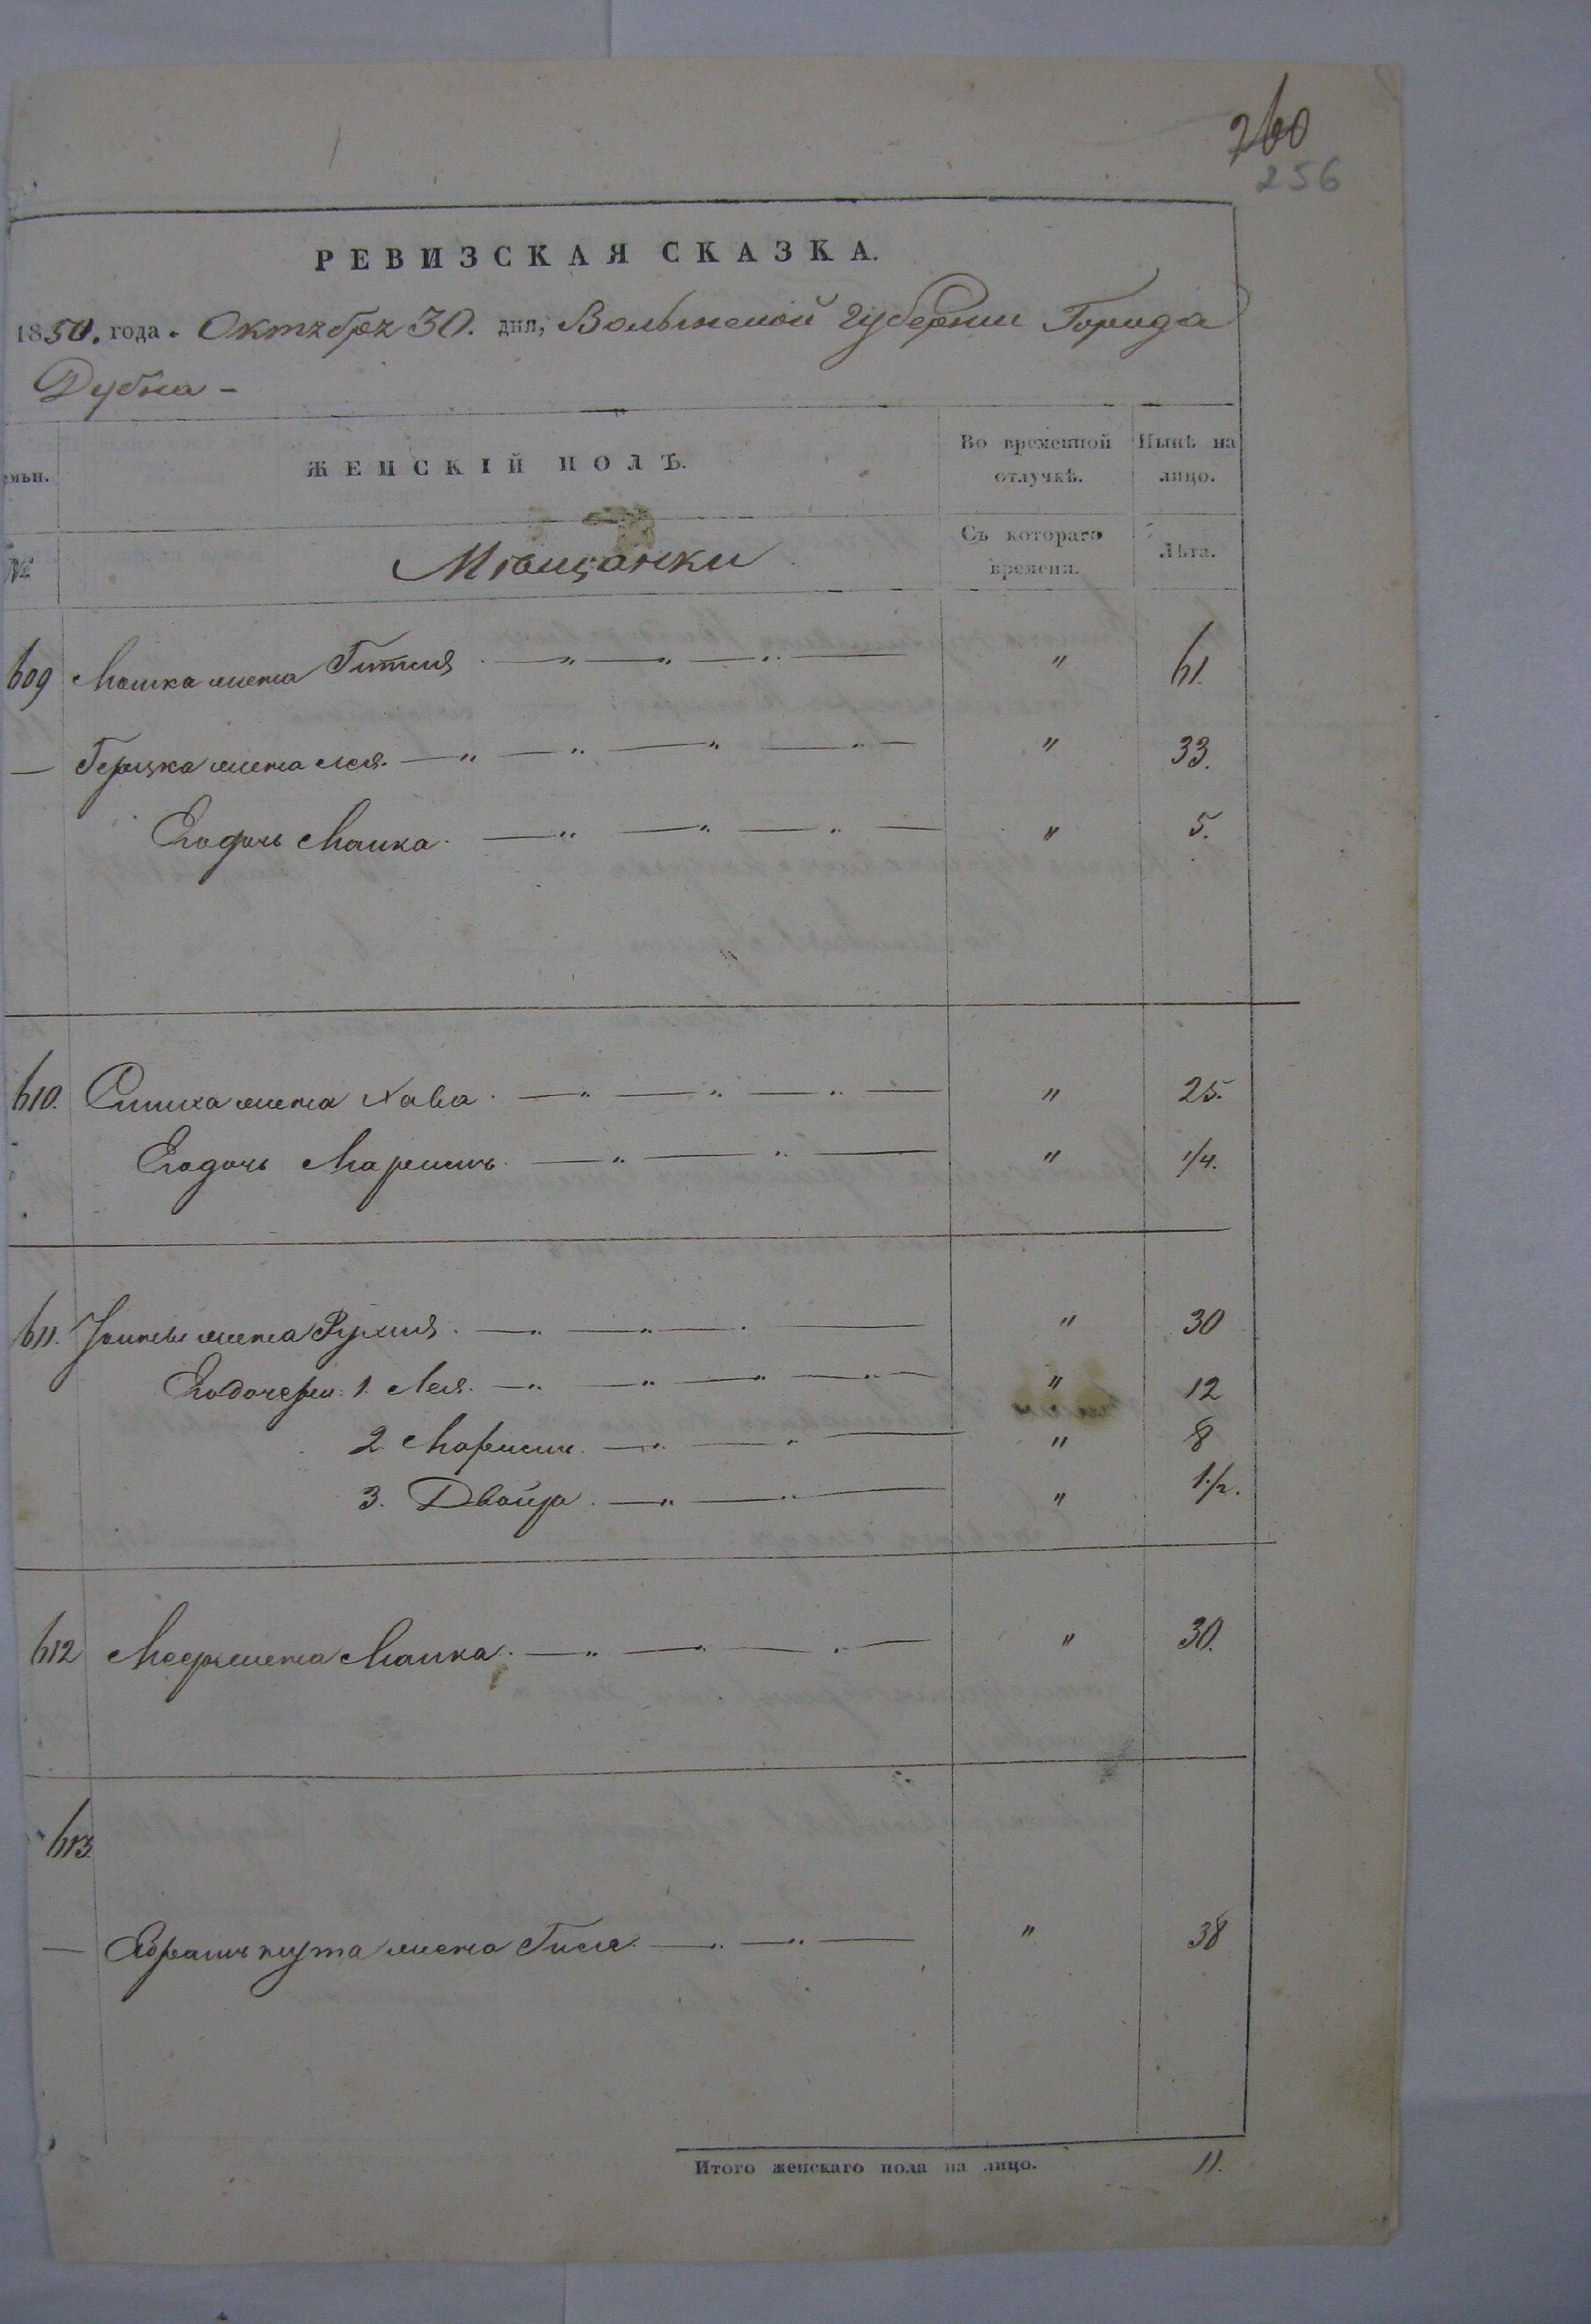 260
256
РЕВИЗСКАЯ СКАЗКА.
1850. года. Октября 30. дня, Волынской Губернии Города
Дубна -
емьи. ЖЕНСКІЙ ПОЛЪ. Во временной отлучкѣ. Нынѣ на лицо.
№ Мѣщанки Съ котораго времени. Лѣта.
609 Мошка жена Гитля " 61.
— Гершка жена Лея. " 33.
Его дочь Малка. " 5.
610. Симха жена Хава. " 25.
Его дочь Маріемъ. " 1/4.
611. жена Рухля. " 30
Его дочери: 1. Лея. " 12
2. Маріемъ. " 8
3. Двойра. " 1 1/2.
612 жена Малка. " 30.
613.
— Абрамъ нута жена Гися. " 38
Итого женскаго пола на лицо. 11.